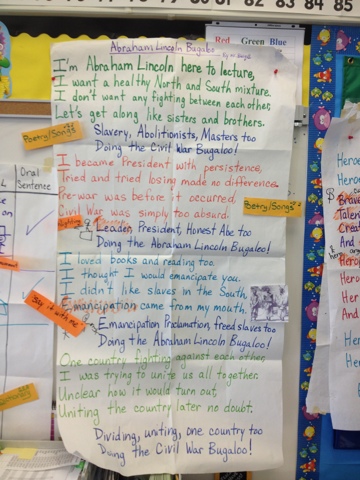 81 82 83 84 85
Red Green Blue
Abraham Lincoln Bugaloo
I'm Abraham Lincoln here to lecture,
I want a healthy North and South mixture.
I don't want any fighting between each other,
Let's get along like sisters and brothers.
Slavery, Abolitionists, Masters too
Doing the Civil War Bugaloo!
Poetry/Songs
I became President with persistence,
Tried and tried losing made no difference.
Pre-war was before it occurred,
Civil War was simply too absurd.
Poetry/Songs
Leader, President, Honest Abe too
Doing the Abraham Lincoln Bugaloo!
I loved books and reading too.
I thought I would emancipate you.
I didn't like slaves in the South,
Emancipation came from my mouth.
Say it with me
Emancipation Proclamation, freed slaves too
Doing the Abraham Lincoln Bugaloo!
One country fighting against each other,
I was trying to unite us all together.
Unclear how it would turn out,
Uniting the country later no doubt.
Dividing, uniting, one country too
Doing the Civil War Bugaloo!
Oral
Sentence
Heroe
Heroe
Brave
Talen
Creat
And
Hero
Hero
Hero
Her
And